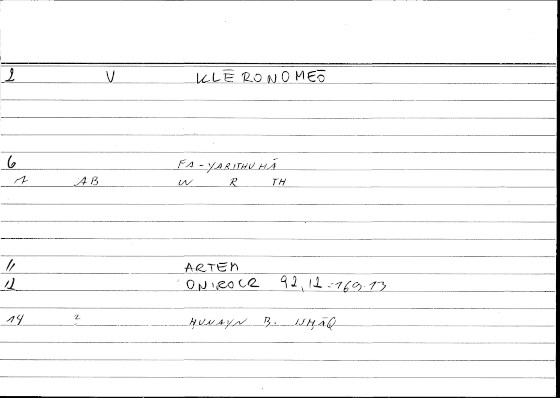 1 V KLĒRONOMEŌ
6 FA-YARITHUHĀ
7 AB W R TH
11 ARTEM
12 ONIROCR 92,12-169.13
14 2 ḤUNAYN B. ISḤĀQ